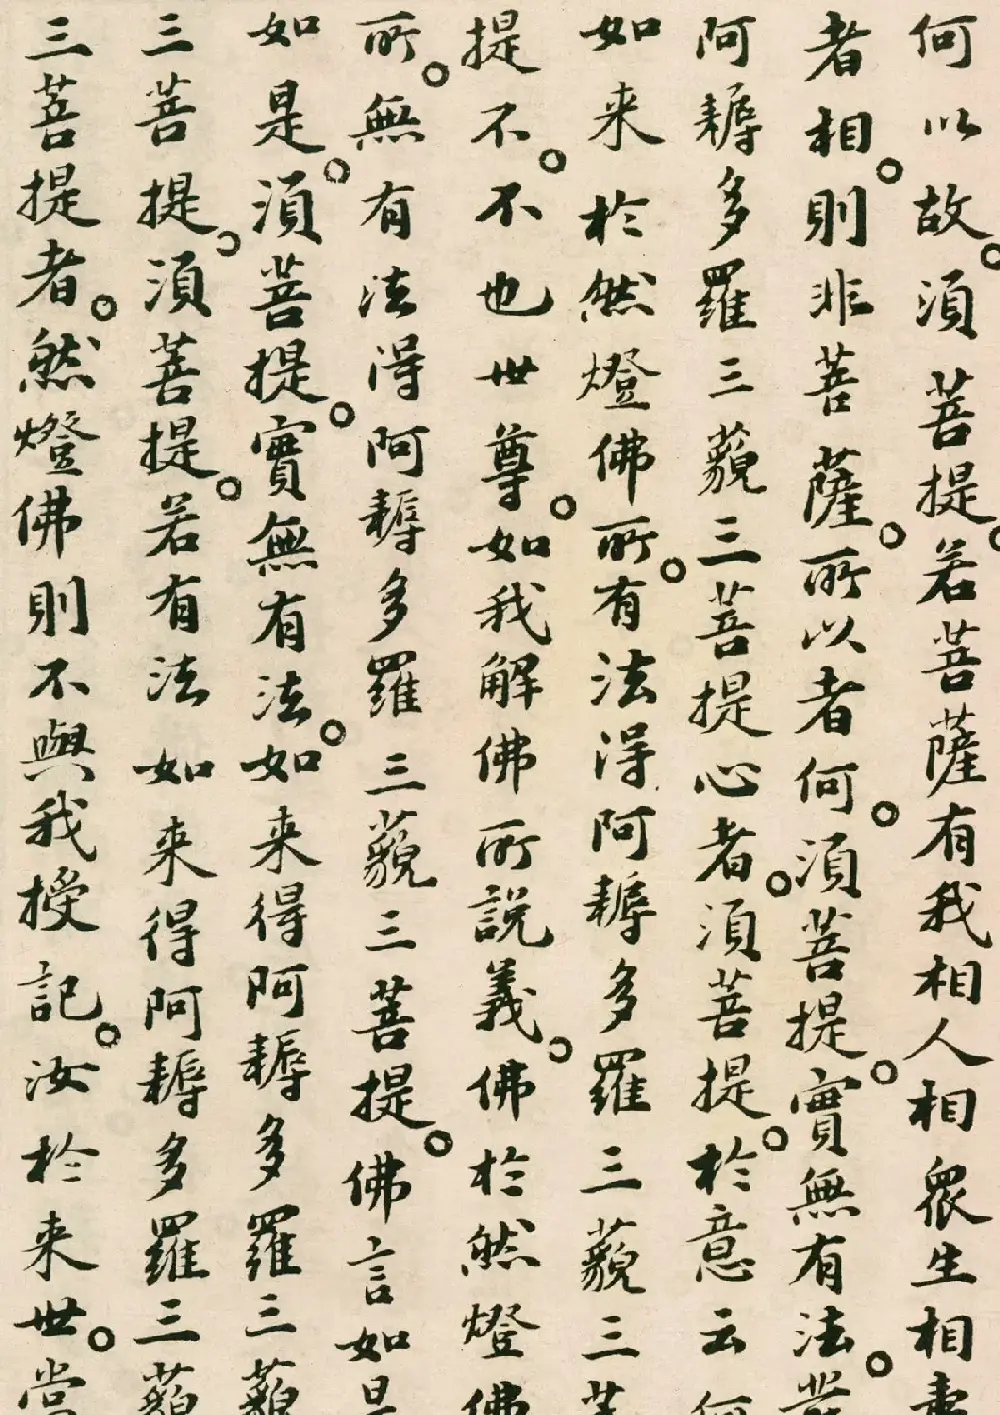 何以故須菩提若菩薩有我相人相衆生相壽
者相則非菩薩所以者何須菩提實無有法發
阿耨多羅三藐三菩提心者須菩提於意云何
如来於然燈佛所有法得阿耨多羅三藐三菩
提不不也世尊如我解佛所說義佛於然燈佛
所無有法得阿耨多羅三藐三菩提佛言如是
如是須菩提實無有法如来得阿耨多羅三藐
三菩提須菩提若有法如来得阿耨多羅三藐
三菩提者然燈佛則不與我授記汝於来世當